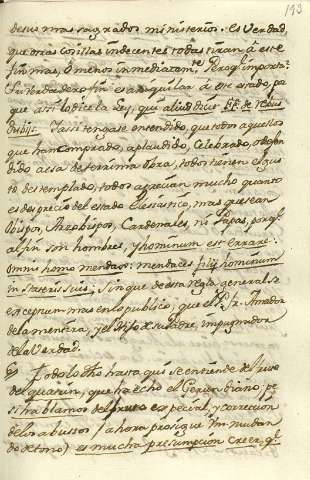 193
de sus mas sagrados ministerios. es Verdad,
que otras cosillas indecentes todas tiran à este
fin mas, ò menos inmediatam.te Pero q.e importa?
Su Verdadero fin es aniquilar à este estado, por
que assi lo dice la Ley, que aliud dicit
Y assi tengase entendido, que todos aquellos
que han comprado, aplaudido, Celebrado,
dido a esta obra, todos tienen el gus
to destemplado, todos aprecian mucho quanto
es desprecio del estado Eclesiastico, mas que sean
Obispos, Arzobispos, Cardenales, ni Papas, porq.e
al fin son hombres, y hominum est errare:
omnis homo mendax: mendaces filij hominum
in stateris suis; sin que de esta regla general se
exceptuen mas en lo publico; que el P. Fr. Amador
de la mentira, y el Hijo de su Padre, impugnador
de la Verdad.
Todo lo dho hasta qui se entiende de
del que ha echo el Gerundiano; pe
si hablamos del fruto especial, y correccion
de los abusos (ahora prosigue Fr. mudan
do de tono) es mucha presumpcion creer, q.e